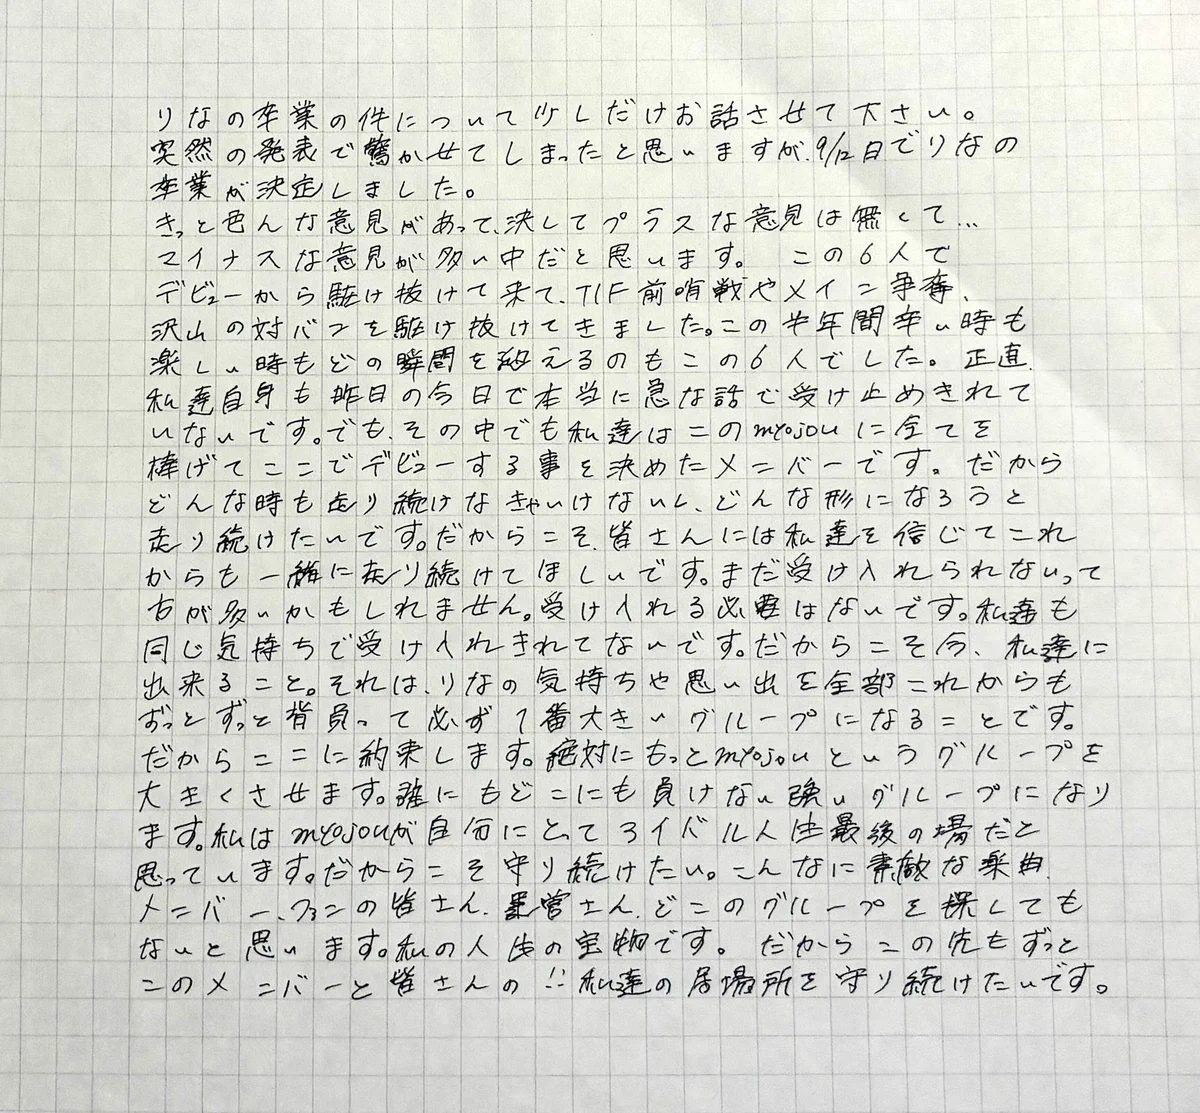 りなの卒業の件について少しだけお話させて下さい。
突然の発表で驚かせてしまったと思いますが、9/12日でりなの
卒業が決定しました。
きっと色んな意見があって、決してプラスな意見は無くて…
マイナスな意見が多い中だと思います。 この6人で
デビューから駆け抜けて来て、TIF前哨戦やメイン争奪、
沢山の対バンを駆け抜けてきました。この半年間辛い時も
楽しい時もどの瞬間を終えるのもこの6人でした。正直、
私達自身も昨日の今日で本当に急な話で受け止めきれて
いないです。でも、その中でも私達はこのmyojouに全てを
捧げてここでデビューする事を決めたメンバーです。だから
どんな時も走り続けなきゃいけないし、どんな形になろうと
走り続けたいです。だからこそ、皆さんには私達を信じてこれ
からも一緒に走り続けてほしいです。まだ受け入れられないって
方が多いかもしれません。受け入れる必要はないです。私達も
同じ気持ちで受け入れきれてないです。だからこそ今、私達に
出来ること。それは、りなの気持ちや思い出を全部これからも
ずっとずっと背負って必ず1番大きいグループになることです。
だからここに約束します。絶対にもっとmyojouというグループを
大きくさせます。誰にもどこにも負けない強いグループになり
ます。私はmyojouが自分にとってアイドル人生最後の場だと
思っています。だからこそ守り続けたい。こんなに素敵な楽曲、
メンバー、ファンの皆さん、運営さん、どこのグループを探しても
ないと思います。私の人生の宝物です。 だからこの先もずっと
このメンバーと皆さんの!!私達の居場所を守り続けたいです。